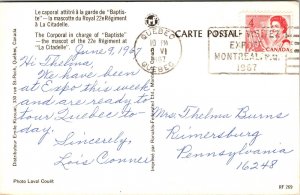 Le caporal attitré à la garde de "Baptis-
te" — la mascotte du Royal 22e Régiment
à La Citadelle.
The Corporal in charge of "Baptiste"
— the mascot of the 22e Regiment at
"La Citadelle".
June 9, 1967
Hi Thelma,
We have been
at Expo this week
and now tour
Quebec to-
day.
Sincerely,
Lois Conner
Photo Laval Couet
CARTE POSTALE
QUEBEC
10 PM
9 VI
1967
QUEBEC
EXPO67
MONTREAL, P.Q.
1967
CANADA
Mrs. Thelma Burns
Rimersburg
Pennsylvania
16248
RF 269